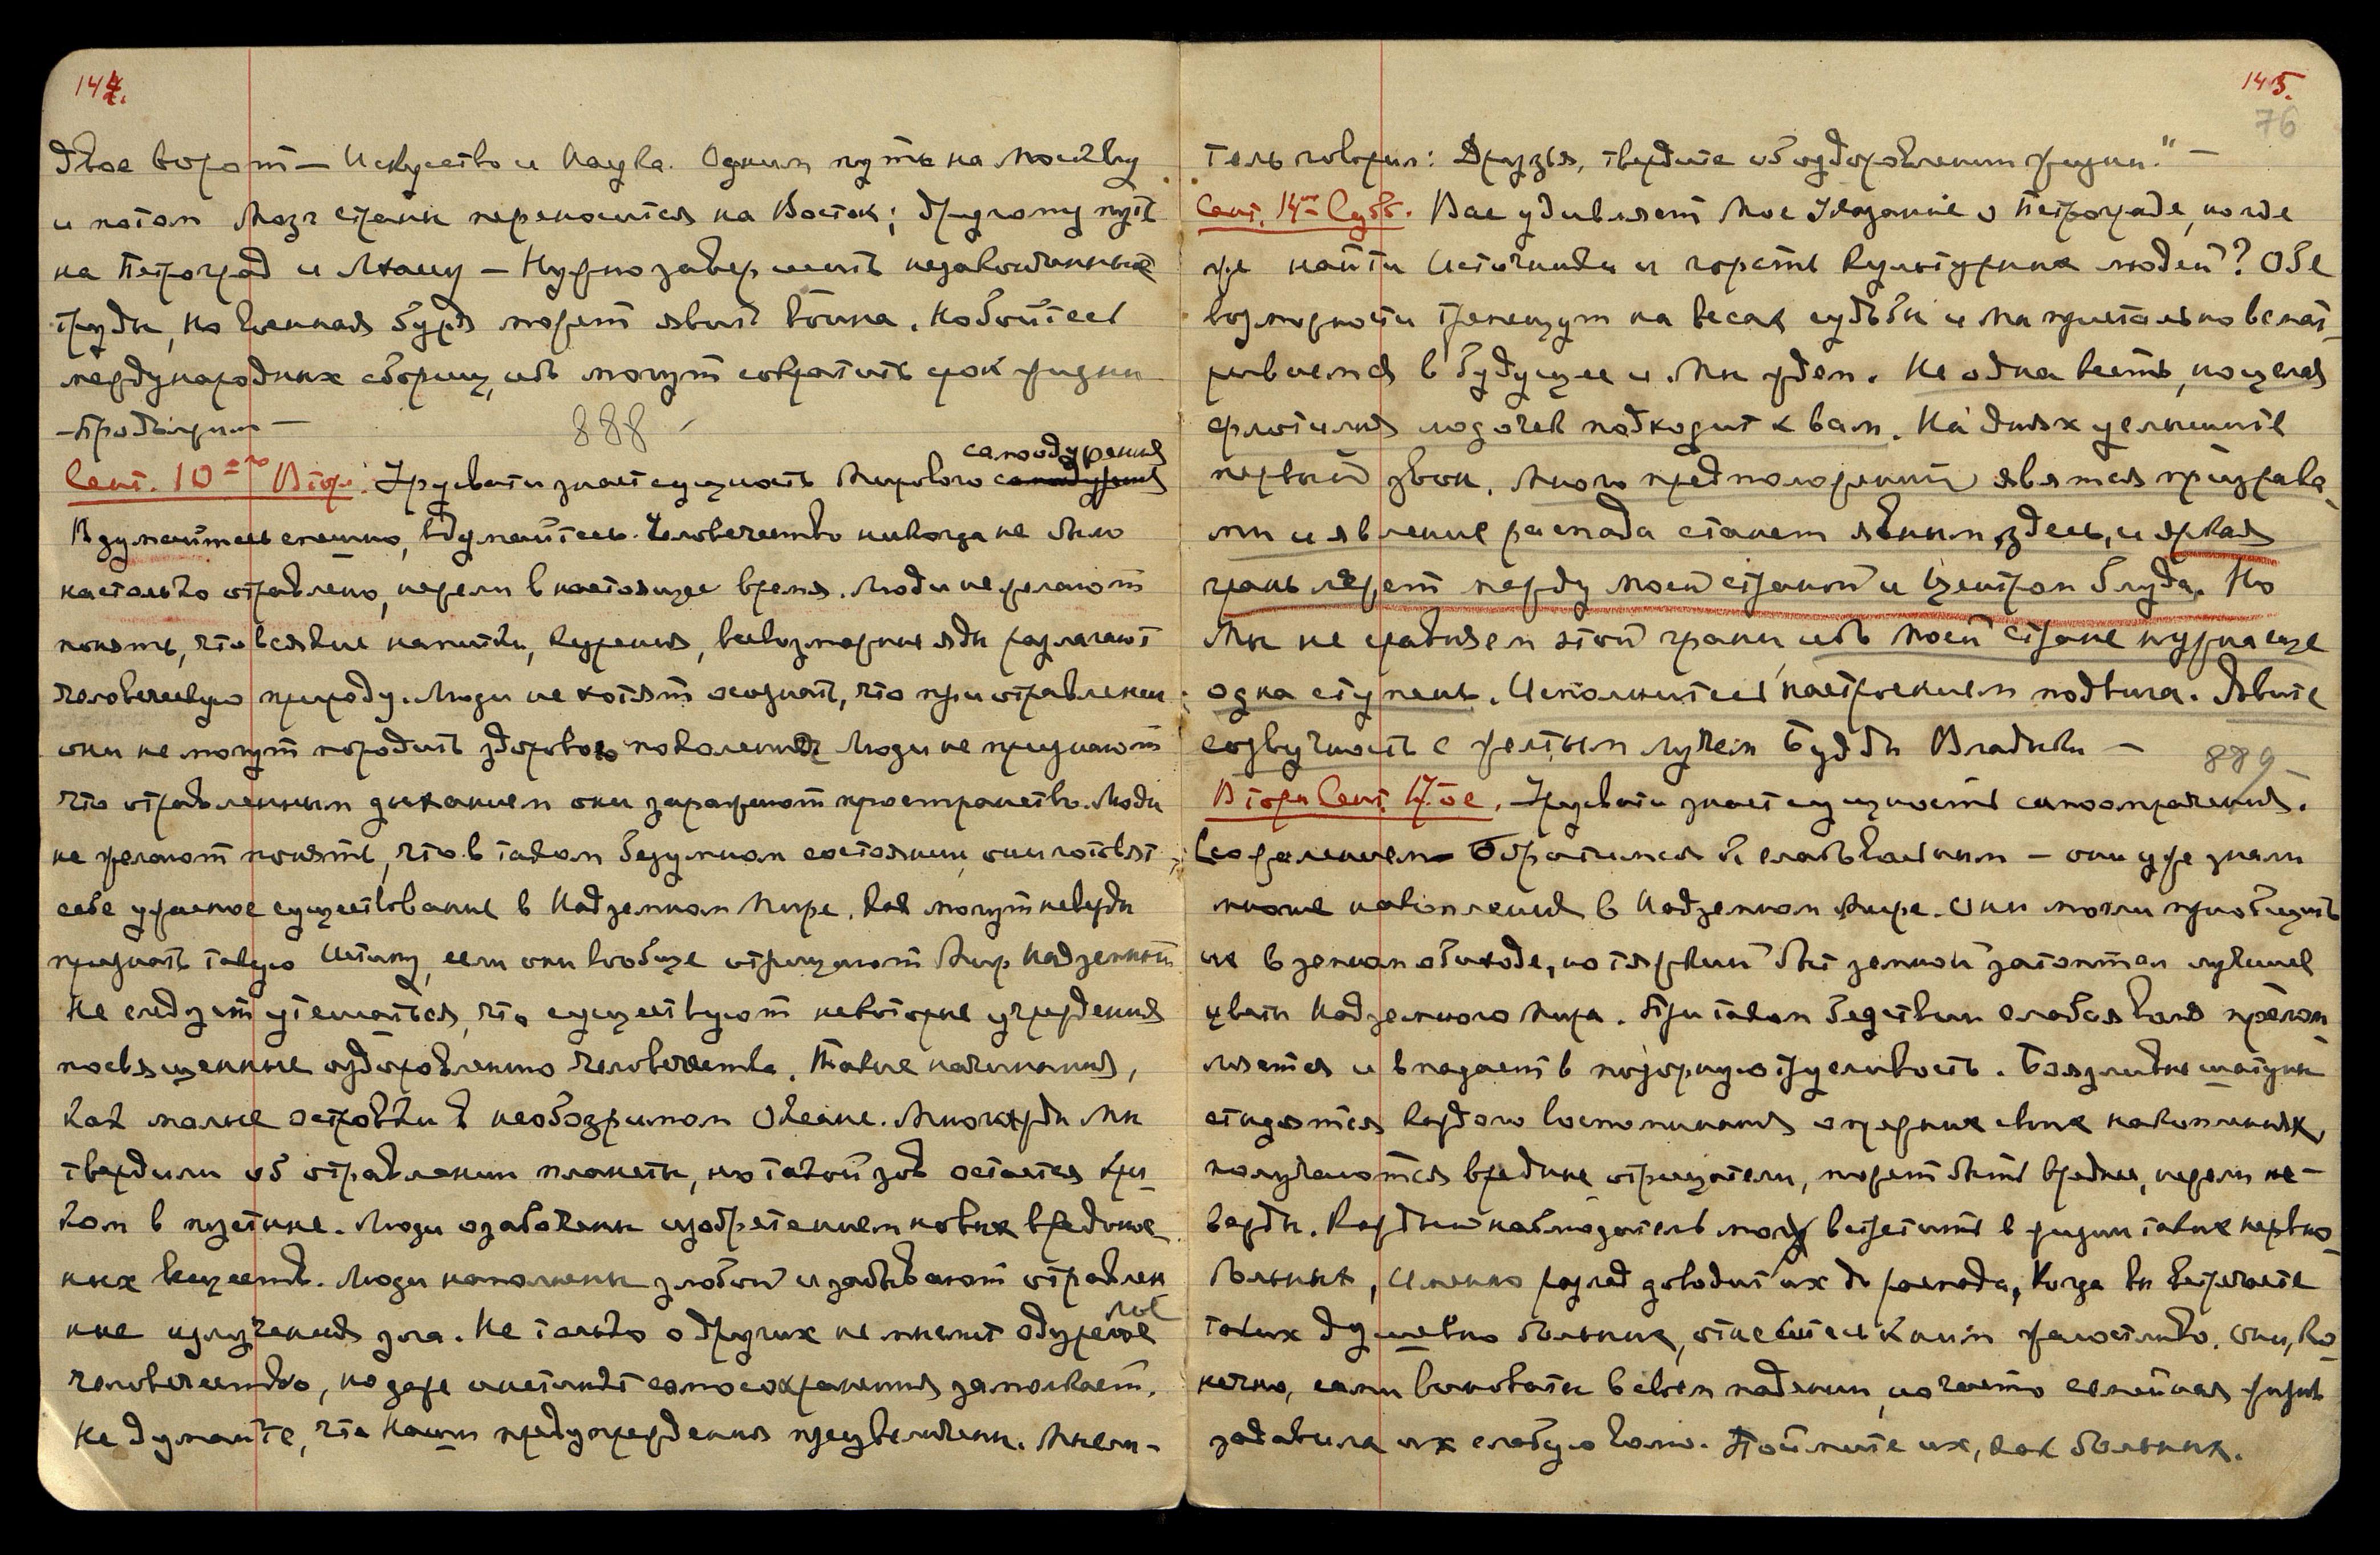 144.
Двое ворот — Искусство и Наука. Одним путь на Москву
и потом Мозг страны переносится на Восток; другому путь
на Петроград и Лхасу — Нужно завершить незаконченные
труды, но военная буря может явить война. Не бойтесь
международных сборищ, ибо могут сократить срок жизни
— Продолжим —
888
Сент. 10го Втор. Урусвати знает сущность Мирового самоодурения
Вдумайтесь спешно, вдумайтесь. Человечество никогда не было
настолько отравлено, нежели в настоящее время. Люди не желают
понять, что всякие напитки, курения, всевозможные яды разлагают
человеческую природу. Люди не хотят осознать, что при отравлении
они не могут породить здорового поколения. Люди не признают
что отравленным дыханием они заражают пространство. Люди
не желают понять, что в таком безумном состоянии, они готовят
себе ужасное существование в Надземном Мире. Как могут невежды
признать такую Истину, если они вообще отрицают Мир Надземный
Не следует утешаться, что существуют некоторые учреждения
посвященные оздоровлению человечества. Такие начинания,
как малые островки в необозримом Океане. Многажды Мы
твердили об отравлении планеты, но такой зов остается кри-
ком в пустыне. Люди озабочены изобретением новых вредонос-
ных веществ. Люди наполнены злобой и забывают отравлен
ные излучения зла. Не только о других не мыслит одурелое
человечество, но даже инстинкт самосохранения замолкает.
Не думайте, что Наши предупреждения преувеличены. Мысли-
145.
76
тель говорил: Друзья, твердите об оздоровлении жизни." —
Сент. 14го Субб. Вас удивляет Мое Указание о Петрограде, но где
же найти Источники и горсть культурных людей? Обе
возможности трепещут на весах судьбы и Мы пристально всмат-
риваемся в будущее и Мы ждем. Не одна весть, но целая
флотилия лодочек подходит к вам. На днях услышите
первый звон. Много предположений явятся призрака-
ми и явление распада станет явным здесь, и яркая
грань ляжет между моей страной и Центром блуда. Но
Мы не удивляем этой грани ибо моей стране нужна еще
одна ступень. Исполнитесь настроением подвига. Явите
созвучность с желтым лучем Будды Владыки —
889
Вторн Сент. 17ое. Урусвати знает сущность самоотрачения.
Сожалением Обратимся к слабовольным — они уже знали
многие накопления в Надземном Мире. Они могли приобщить
их в земном обиходе, но тяжкий быт земной затоптал лучшие
цветы Надземного Мира. При таком бедствии слабая воля прелом
ляется и впадает в позорную трусливость. Боязливые шатуны
стыдятся каждого воспоминания о прежних своих накоплениях,
получаются вредные отрицатели, может быть вреднее, нежели не-
вежды. Каждый наблюдатель может встретить в жизни таких нервно-
больных, именно разлад доводит их до распада, Когда вы встречаете
таких душевно больных, отнеситесь к ним жалостливо. Они, ко-
нечно, сами виноваты в своем падении, но часто семейная жизнь
задавила их слабую волю. Поймите их, как больных.